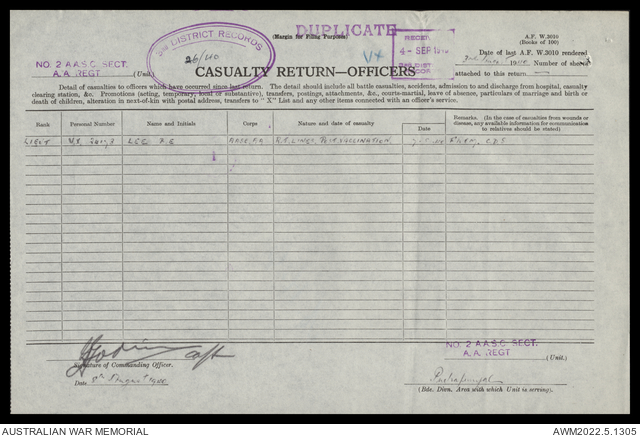 DUPLICATE
(Margin for Filing Purposes)
A.F. W.3010
(Books of 100)
3RD DISTRICT RECORDS
26/40
4- SEP
NO. 2 A.A.S.C. SECT.
A.A. REGT (Unit)
CASUALTY RETURN—OFFICERS
Date of last A.F. W.3010 rendered
1940. Number of sheets
attached to this return
Detail of casualties to officers which have occurred since last return. The detail should include all battle casualties, accidents, admission to and discharge from hospital, casualty
clearing station, &c. Promotions (acting, temporary, local or substantive), transfers, postings, attachments, &c., courts-martial, leave of absence, particulars of marriage and birth or
death of children, alteration in next-of-kin with postal address, transfers to "X" List and any other items connected with an officer's service.
Rank
Personal Number
Name and Initials
Corps
Nature and date of casualty
Date
Remarks. (In the case of casualties from wounds or
disease, any available information for communication
to relatives should be stated)
LIEUT LEE VACCINATION
Capt
Signature of Commanding Officer.
Date 5th August 1940
NO. 2 A.A.S.C. SECT.
A.A. REGT (Unit.)
(Bde. Divn. Area with which Unit is serving).
AUSTRALIAN WAR MEMORIAL
AWM2022.5.1305